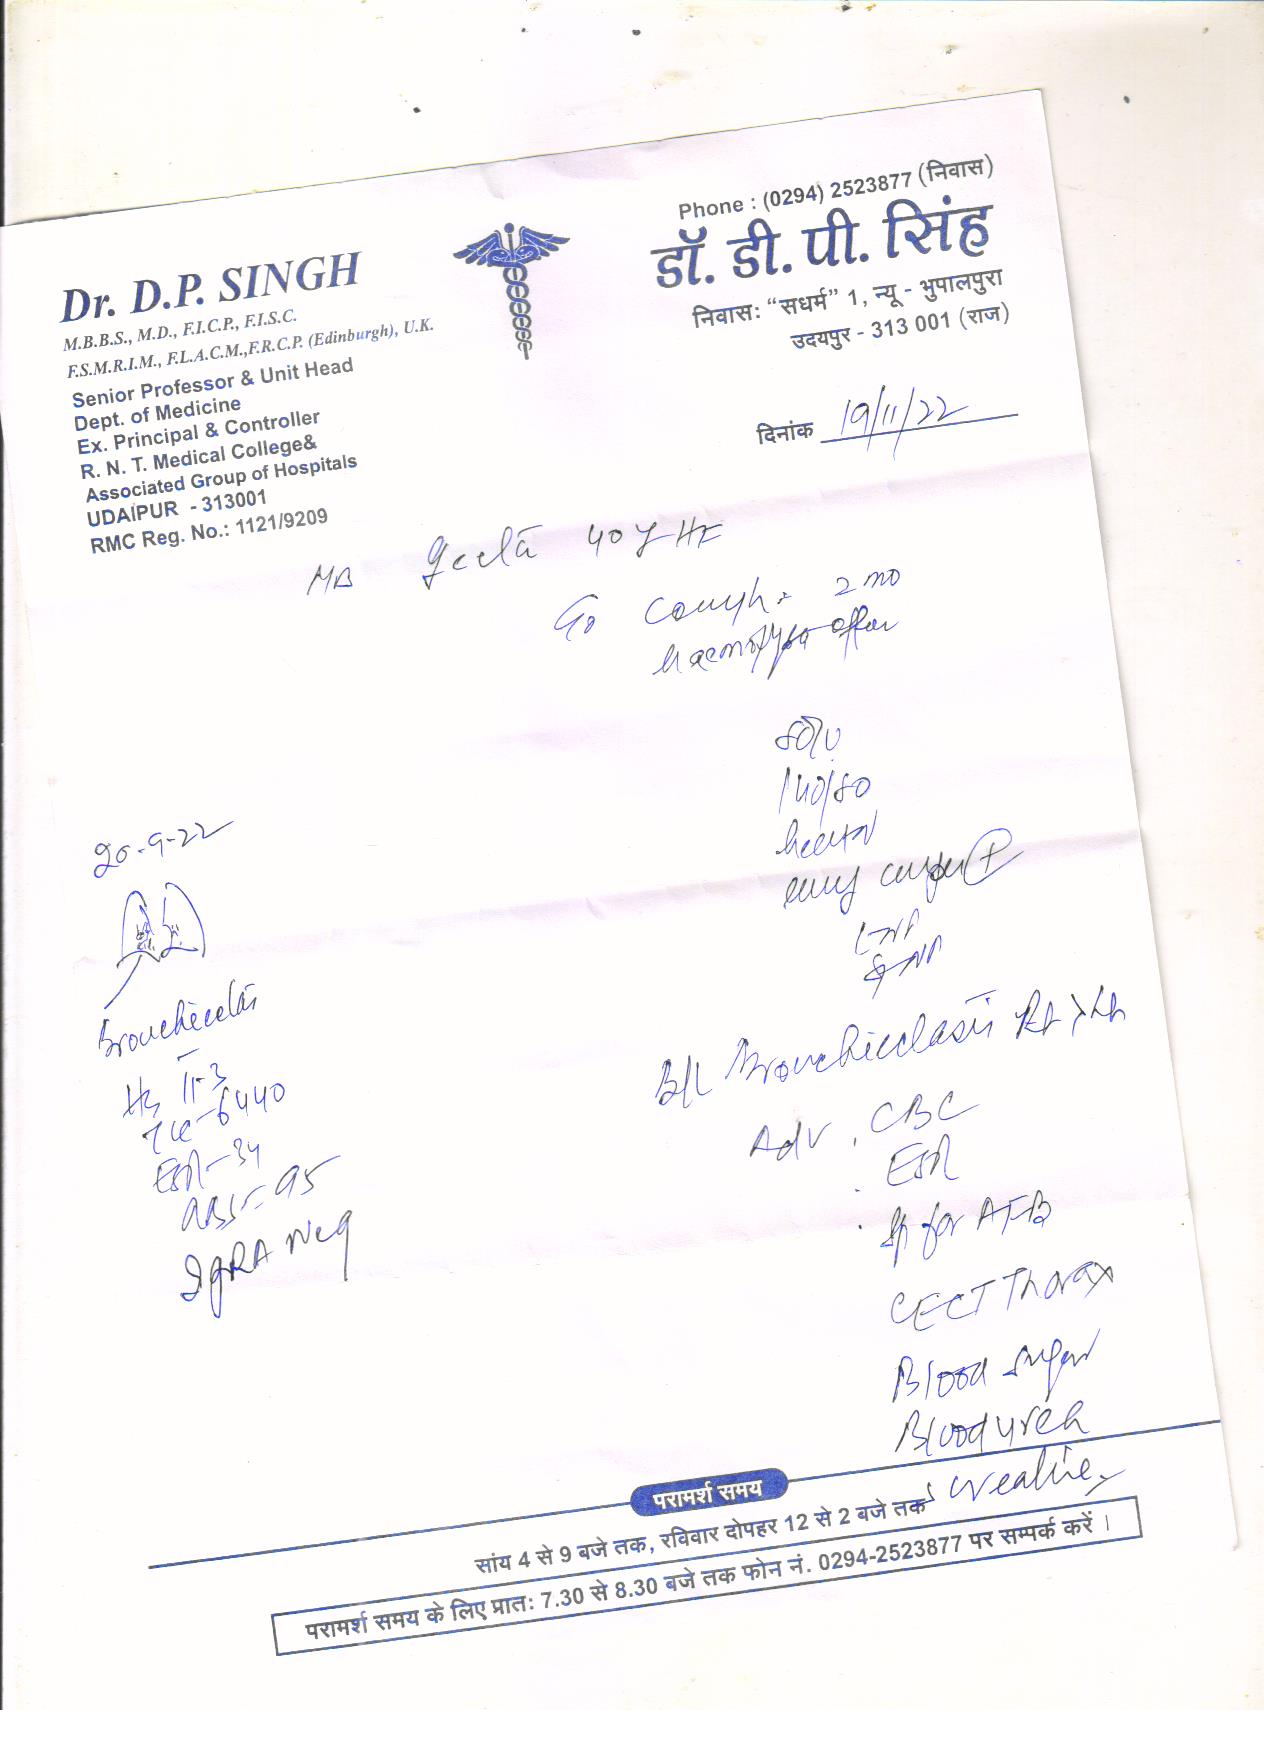 Phone : (0294) 2523877 (निवास)
डॉ. डी. पी. सिंह
निवास: “सधर्म” 1, न्यू - भुपालपुरा
उदयपुर - 313 001 (राज)
Dr. D.P. SINGH
M.B.B.S., M.D., F.I.C.P., F.I.S.C.
F.S.M.R.I.M., F.L.A.C.M.,F.R.C.P. (Edinburgh), U.K.
Senior Professor & Unit Head
Dept. of Medicine
Ex. Principal & Controller
R. N. T. Medical College&
Associated Group of Hospitals
UDAIPUR - 313001
RMC Reg. No.: 1121/9209
दिनांक 19/11/22
Geeta 40y
cough 2 mo
haemoptysis
140/80
20-9-22
Bronchiectasis
Hb 11.3
TLC-6440
ESR-34
95
IgRA Neg
B/L Bronchiectasis Rt > Lt
Adv. CBC
ESR
Sp for AFB
CECT Thorax
Blood Sugar
Blood urea
परामर्श समय
सांय 4 से 9 बजे तक, रविवार दोपहर 12 से 2 बजे तक
परामर्श समय के लिए प्रात: 7.30 से 8.30 बजे तक फोन नं. 0294-2523877 पर सम्पर्क करें ।